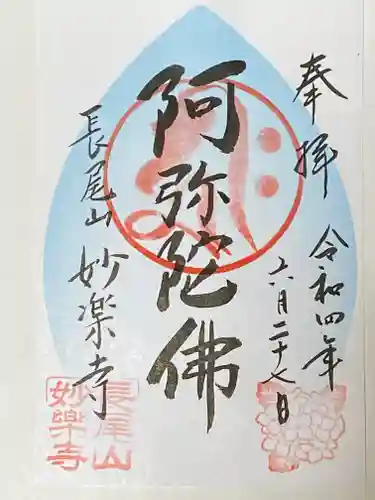 奉拝
令和四年
六月二十七日
阿弥陀佛
長尾山
妙楽寺
長尾山
妙楽寺